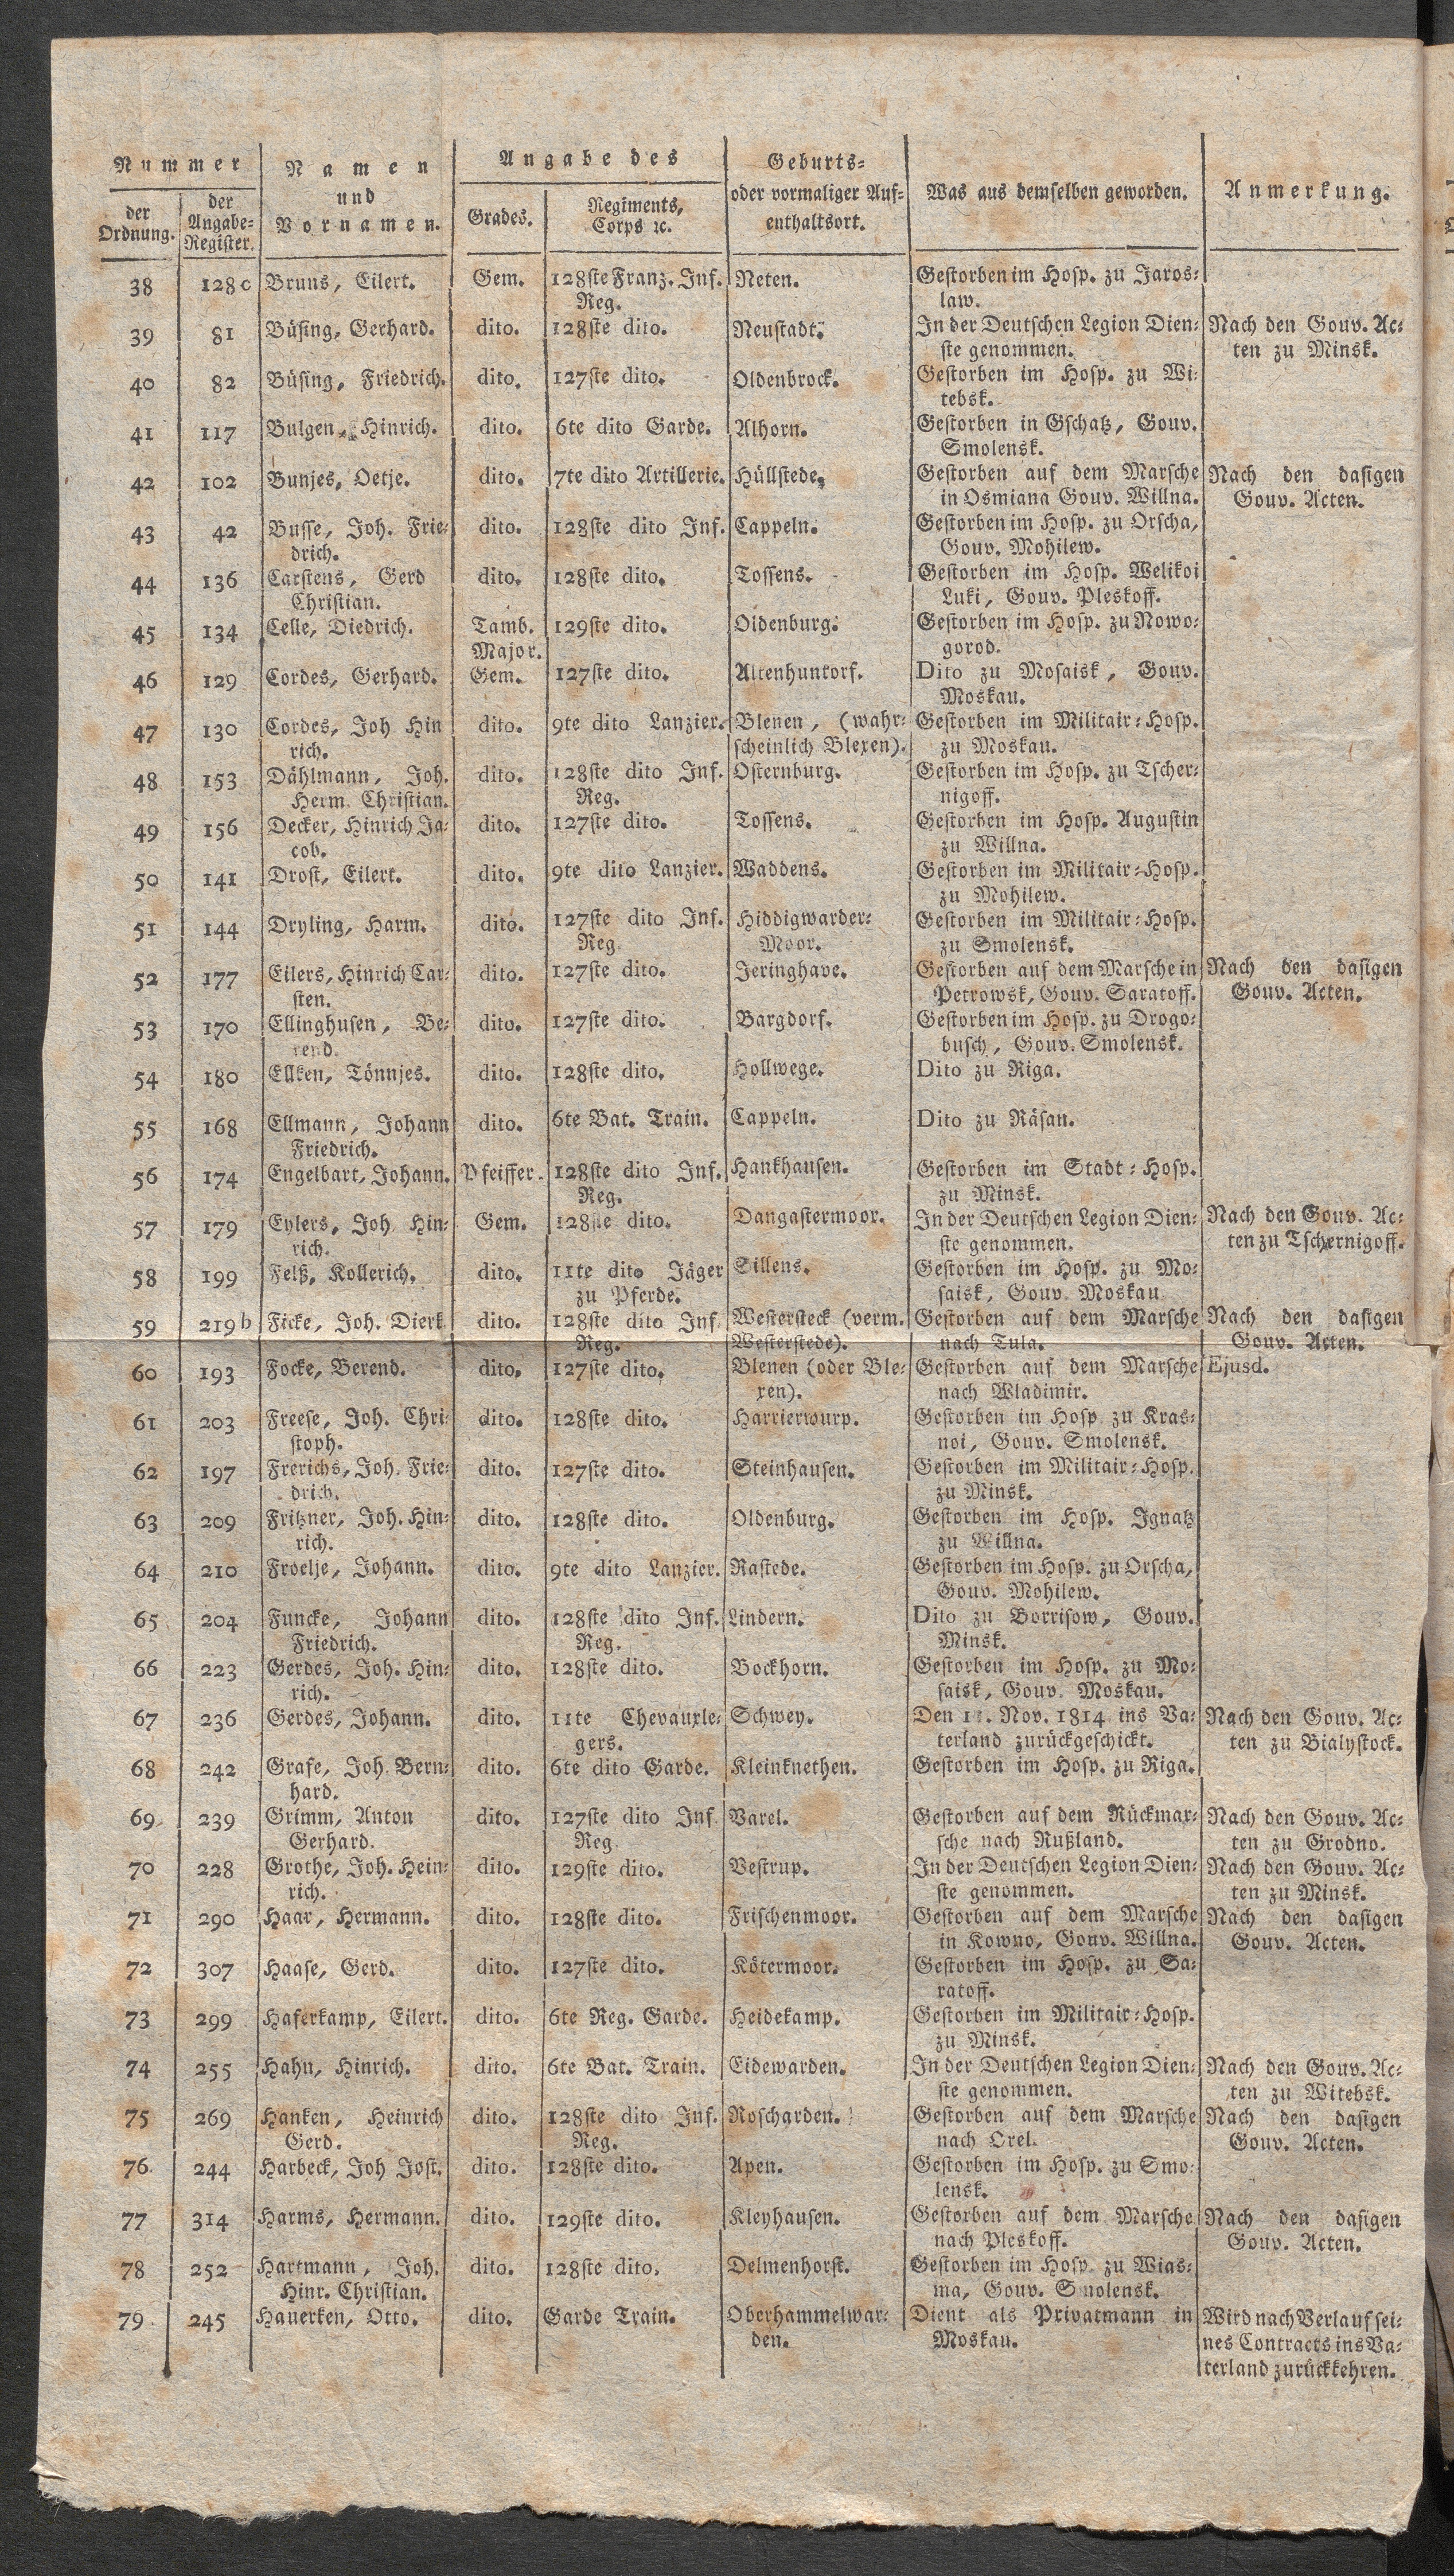 Nummer
der Ordnung.
der Angabe-Register.
Namen
und
Vornamen.
Angabe des
Grades.
Regiments, Corps ꝛc.
Geburts-
oder vormaliger Auf-
enthaltsort.
Was aus demselben geworden.
Anmerkung.
38 128c Bruns, Eilert. Gem. 128ste Franz. Inf. Neten. Gestorben im Hosp. zu Jaros-
Reg. law.
39 81 Büsing, Gerhard. dito. 128ste dito. Neustadt. In der Deutschen Legion Dien- Nach den Gouv. Ac-
ste genommen. ten zu Minsk.
40 82 Büsing, Friedrich. dito. 127ste dito. Oldenbrock. Gestorben im Hosp. zu Wi-
tebsk.
41 117 Bulgen, Hinrich. dito. 6te dito Garde. Alhorn. Gestorben in Gschatz, Gouv.
Smolensk.
42 102 Bunjes, Oetje. dito. 7te dito Artillerie. Hüllstede. Gestorben auf dem Marsche Nach den dasigen
in Osmiana Gouv. Willna. Gouv. Acten.
43 42 Busse, Joh. Frie- dito. 128ste dito Inf. Cappeln. Gestorben im Hosp. zu Orscha,
drich. Gouv. Mohilew.
44 136 Carstens, Gerd dito. 128ste dito. Tossens. Gestorben im Hosp. Welikoi
Christian. Luki, Gouv. Pleskoff.
45 134 Celle, Diedrich. Tamb. 129ste dito. Oldenburg. Gestorben im Hosp. zu Nowo-
Major. gorod.
46 129 Cordes, Gerhard. Gem. 127ste dito. Altenhuntorf. Dito zu Mosaisk, Gouv.
Moskau.
47 130 Cordes, Joh Hin dito. 9te dito Lanzier. Blenen, (wahr- Gestorben im Militair-Hosp.
rich. scheinlich Blexen). zu Moskau.
48 153 Dählmann, Joh. dito. 128ste dito Inf. Osternburg. Gestorben im Hosp. zu Tscher-
Herm. Christian. Reg. nigoff.
49 156 Decker, Hinrich Ja- dito. 127ste dito. Tossens. Gestorben im Hosp. Augustin
cob. zu Willna.
50 141 Drost, Eilert. dito. 9te dito Lanzier. Waddens. Gestorben im Militair-Hosp.
zu Mohilew.
51 144 Dryling, Harm. dito. 127ste dito Inf. Hiddigwarder- Gestorben im Militair-Hosp.
Reg. Moor. zu Smolensk.
52 177 Eilers, Hinrich Car- dito. 127ste dito. Jeringhave. Gestorben auf dem Marsche in Nach den dasigen
sten. Petrowsk, Gouv. Saratoff. Gouv. Acten.
53 170 Ellinghusen, Be- dito. 127ste dito. Bargdorf. Gestorben im Hosp. zu Drogo-
rend. busch, Gouv. Smolensk.
54 180 Ellken, Tönnjes. dito. 128ste dito. Hollwege. Dito zu Riga.
55 168 Ellmann, Johann dito. 6te Bat. Train. Cappeln. Dito zu Räsan.
Friedrich.
56 174 Engelbart, Johann. Pfeiffer. 128ste dito Inf. Hankhausen. Gestorben im Stadt-Hosp.
Reg. zu Minsk.
57 179 Eylers, Joh Hin- Gem. 128ste dito. Dangastermoor. In der Deutschen Legion Dien- Nach den Gouv. Ac-
rich. ste genommen. ten zu Tschernigoff.
58 199 Felß, Kollerich. dito. 11te dito Jäger Sillens. Gestorben im Hosp. zu Mo-
zu Pferde. saisk, Gouv Moskau
59 219b Ficke, Joh. Dierk dito. 128ste dito Inf. Westersteck (verm. Gestorben auf dem Marsche Nach den dasigen
Reg. Westerstede). nach Tula. Gouv. Acten.
60 193 Focke, Berend. dito. 127ste dito. Blenen (oder Ble- Gestorben auf dem Marsche Ejusd.
xen). nach Wladimir.
61 203 Freese, Joh. Chri- dito. 128ste dito. Harrierwurp. Gestorben im Hosp zu Kras-
stoph. noi, Gouv. Smolensk.
62 197 Frerichs, Joh. Frie- dito. 127ste dito. Steinhausen. Gestorben im Militair-Hosp.
drich. zu Minsk.
63 209 Fritzner, Joh. Hin- dito. 128ste dito. Oldenburg. Gestorben im Hosp. Ignatz
rich. zu Willna.
64 210 Froelje, Johann. dito. 9te dito Lanzier. Rastede. Gestorben im Hosp. zu Orscha,
Gouv. Mohilew.
65 204 Funcke, Johann dito. 128ste dito Inf. Lindern. Dito zu Borrisow, Gouv.
Friedrich. Reg. Minsk.
66 223 Gerdes, Joh. Hin- dito. 128ste dito. Bockhorn. Gestorben im Hosp. zu Mo-
rich. saisk, Gouv. Moskau.
67 236 Gerdes, Johann. dito. 11te Chevauxle- Schwey. Den Nov. 1814 ins Va- Nach den Gouv. Ac-
gers. terland zurückgeschickt. ten zu Bialystock.
68 242 Grafe, Joh. Bern- dito. 6te dito Garde. Kleinknethen. Gestorben im Hosp. zu Riga.
hard.
69 239 Grimm, Anton dito. 127ste dito Inf. Varel. Gestorben auf dem Rückmar- Nach den Gouv. Ac-
Gerhard. Reg. sche nach Rußland. ten zu Grodno.
70 228 Grothe, Joh. Hein- dito. 129ste dito. Vestrup. In der Deutschen Legion Dien- Nach den Gouv. Ac-
rich. ste genommen. ten zu Minsk.
71 290 Haar, Hermann. dito. 128ste dito. Frischenmoor. Gestorben auf dem Marsche Nach den dasigen
in Kowno, Gouv. Willna. Gouv. Acten.
72 307 Haase, Gerd. dito. 127ste dito. Kötermoor. Gestorben im Hosp. zu Sa-
ratoff.
73 299 Haferkamp, Eilert. dito. 6te Reg. Garde. Heidekamp. Gestorben im Militair-Hosp.
zu Minsk.
74 255 Hahn, Hinrich. dito. 6te Bat. Train. Eidewarden. In der Deutschen Legion Dien- Nach den Gouv. Ac-
ste genommen. ten zu Witebsk.
75 269 Hanken, Heinrich dito. 128ste dito Inf. Roscharden. Gestorben auf dem Marsche Nach den dasigen
Gerd. Reg. nach Orel. Gouv. Acten.
76. 244 Harbeck, Joh Jost. dito. 128ste dito. Apen. Gestorben im Hosp. zu Smo-
lensk.
77 314 Harms, Hermann. dito. 129ste dito. Kleyhausen. Gestorben auf dem Marsche Nach den dasigen
nach Pleskoff. Gouv. Acten.
78 252 Hartmann, Joh. dito. 128ste dito. Delmenhorst. Gestorben im Hosp. zu Wias-
Hinr. Christian. ma, Gouv. Smolensk.
79 245 Hauerken, Otto. dito. Garde Train. Oberhammelwar- Dient als Privatmann in Wird nach Verlauf sei-
den. Moskau. nes Contracts ins Va-
terland zurückkehren.